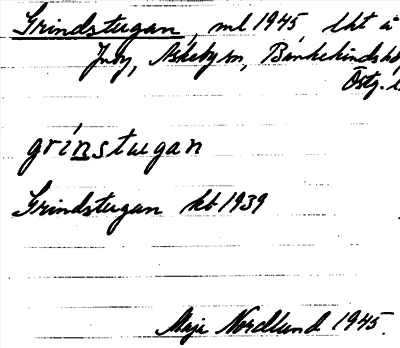 Grindstugan, ml 1945, lht å
Juby, Askeby sn, Bankekinds hd
Östg. l
grínstugan
Grindstugan kb 1939
Maja Nordlund 1945.